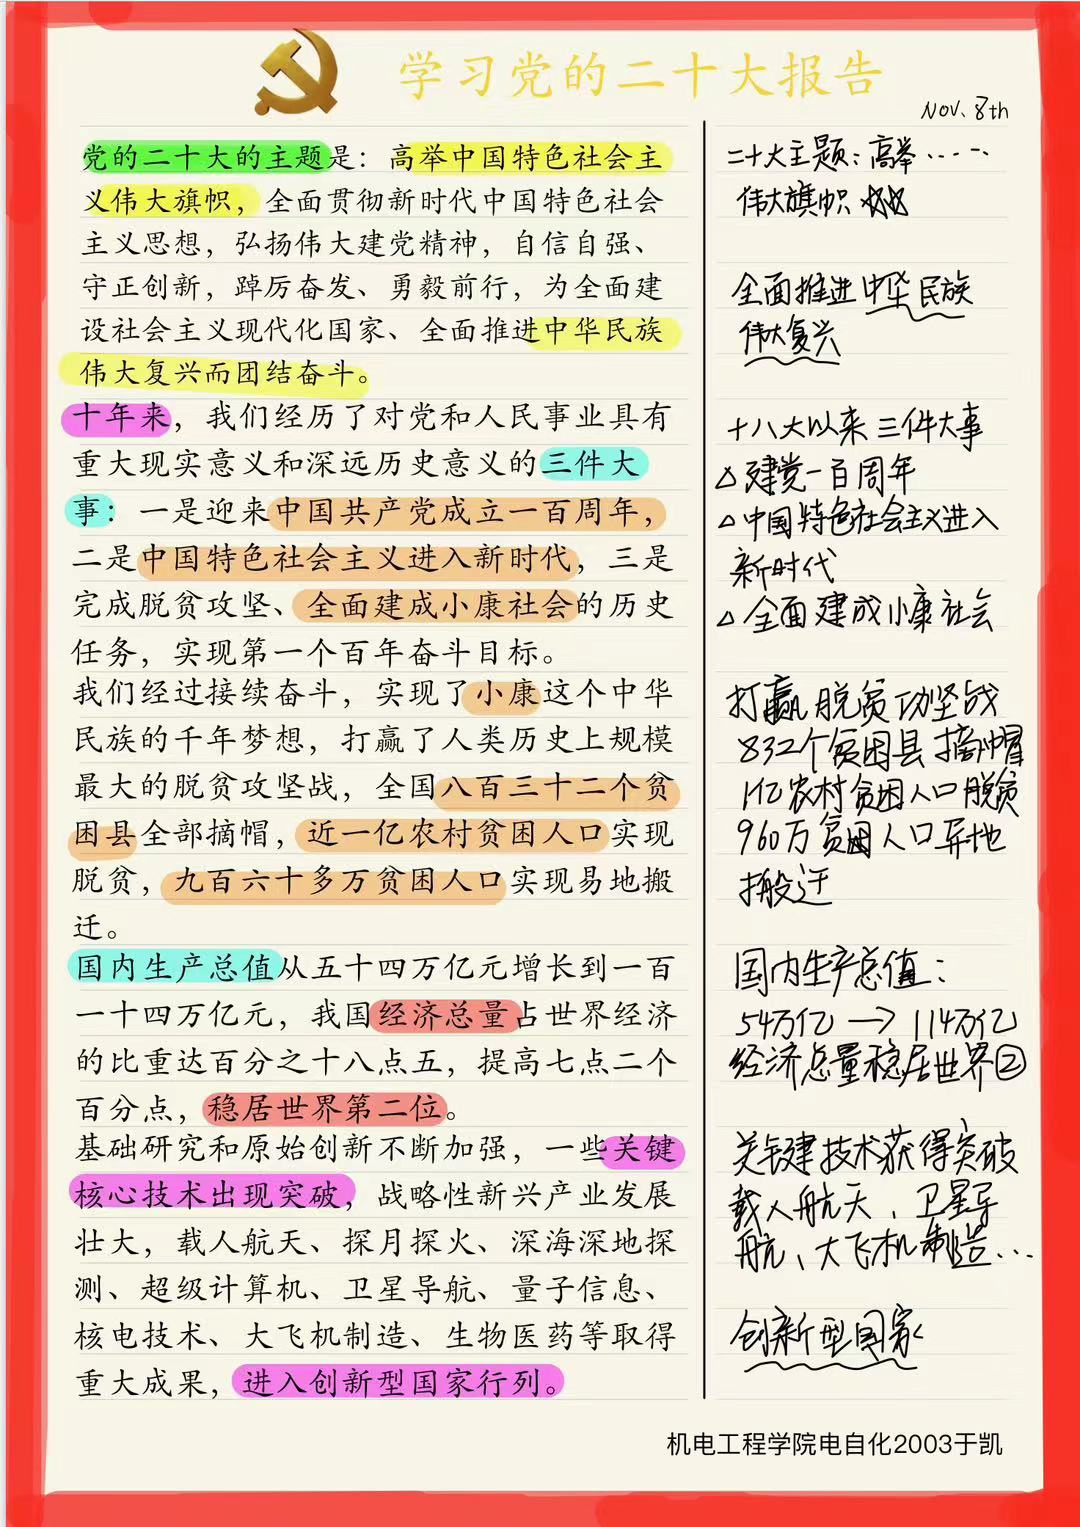 学习党的二十大报告
Nov. 8th
党的二十大的主题是：高举中国特色社会主
义伟大旗帜，全面贯彻新时代中国特色社会
主义思想，弘扬伟大建党精神，自信自强、
守正创新，踔厉奋发、勇毅前行，为全面建
设社会主义现代化国家、全面推进中华民族
伟大复兴而团结奋斗。
十年来，我们经历了对党和人民事业具有
重大现实意义和深远历史意义的三件大
事：一是迎来中国共产党成立一百周年，
二是中国特色社会主义进入新时代，三是
完成脱贫攻坚、全面建成小康社会的历史
任务，实现第一个百年奋斗目标。
我们经过接续奋斗，实现了小康这个中华
民族的千年梦想，打赢了人类历史上规模
最大的脱贫攻坚战，全国八百三十二个贫
困县全部摘帽，近一亿农村贫困人口实现
脱贫，九百六十多万贫困人口实现易地搬
迁。
国内生产总值从五十四万亿元增长到一百
一十四万亿元，我国经济总量占世界经济
的比重达百分之十八点五，提高七点二个
百分点，稳居世界第二位。
基础研究和原始创新不断加强，一些关键
核心技术出现突破，战略性新兴产业发展
壮大，载人航天、探月探火、深海深地探
测、超级计算机、卫星导航、量子信息、
核电技术、大飞机制造、生物医药等取得
重大成果，进入创新型国家行列。
二十大主题：高举……
伟大旗帜 ☆☆
全面推进中华民族
伟大复兴
十八大以来三件大事
△建党一百周年
△中国特色社会主义进入
新时代
△全面建成小康社会
打赢脱贫功坚战
832个贫困县摘帽
1亿农村贫困人口脱贫
960万贫困人口异地
搬迁
国内生产总值：
54万亿→114万亿
经济总量稳居世界②
关键技术获得突破
载人航天、卫星导
航、大飞机制造…
创新型国家
机电工程学院电自化2003于凯